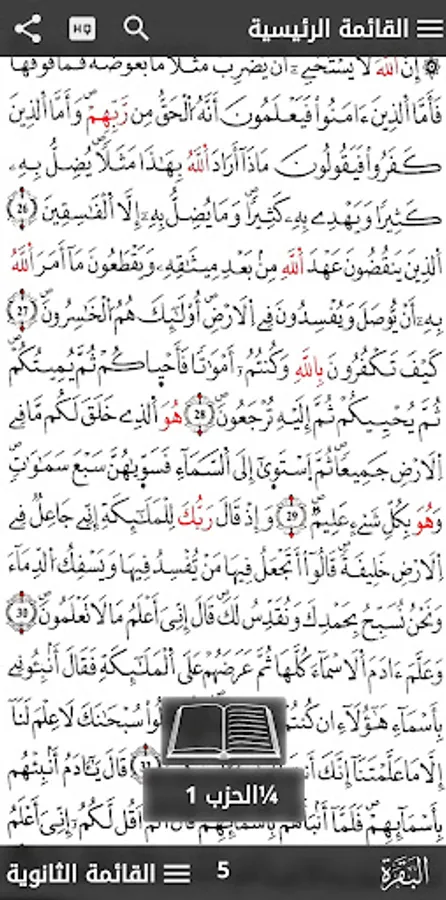 القائمة الرئيسية
۞ إِنَّ اَللَّهَ لَا يَسْتَحْيِۦٓ أَنْ يَّضْرِبَ مَثَلًا مَّا بَعُوضَةً فَمَا فَوْقَهَا
فَأَمَّا اَلذِينَ ءَامَنُواْ فَيَعْلَمُونَ أَنَّهُ اُ۬لْحَقُّ مِن رَّبِّهِمْ وَأَمَّا اَلذِينَ
كَفَرُواْ فَيَقُولُونَ مَاذَآ أَرَادَ اَللَّهُ بِهَٰذَا مَثَلًا يُضِلُّ بِهِۦ
كَثِيرًا وَيَهْدِے بِهِۦ كَثِيرًا وَمَا يُضِلُّ بِهِۦٓ إِلَّا اَلْفَٰسِقِينَ 26
اَلذِينَ يَنقُضُونَ عَهْدَ اَللَّهِ مِنۢ بَعْدِ مِيثَٰقِهِۦ وَيَقْطَعُونَ مَآ أَمَرَ اَللَّهُ
بِهِۦٓ أَنْ يُّوصَلَ وَيُفْسِدُونَ فِے اِ۬لَارْضِ أُوْلَٰٓئِكَ هُمُ اُ۬لْخَٰسِرُونَ 27
كَيْفَ تَكْفُرُونَ بِاللَّهِ وَكُنتُمُۥٓ أَمْوَٰتًا فَأَحْيَٰكُمْ ثُمَّ يُمِيتُكُمْ
ثُمَّ يُحْيِيكُمْ ثُمَّ إِلَيْهِ تُرْجَعُونَ 28 هُوَ اَلذِے خَلَقَ لَكُم مَّا فِے
اِ۬لَارْضِ جَمِيعًا ثُمَّ اَسْتَوٜىٰٓ إِلَى اَ۬لسَّمَآءِ فَسَوّٜىٰهُنَّ سَبْعَ سَمَٰوَٰتٍ
وَهُوَ بِكُلِّ شَےْءٍ عَلِيمٌ 29 وَإِذْ قَالَ رَبُّكَ لِلْمَلَٰٓئِكَةِ إِنِّے جَاعِلٌ فِے
اِ۬لَارْضِ خَلِيفَةً قَالُوٓاْ أَتَجْعَلُ فِيهَا مَنْ يُّفْسِدُ فِيهَا وَيَسْفِكُ اُ۬لدِّمَآءَ
وَنَحْنُ نُسَبِّحُ بِحَمْدِكَ وَنُقَدِّسُ لَكَ قَالَ إِنِّيَ أَعْلَمُ مَا لَا تَعْلَمُونَ 30
وَعَلَّمَ ءَادَمَ اَلَاسْمَآءَ كُلَّهَا ثُمَّ عَرَضَهُمْ عَلَى اَ۬لْمَلَٰٓئِكَةِ فَقَالَ أَنۢبِـُٔونِے
بِأَسْمَآءِ هَٰٓؤُلَآءِ ان كُنتُمْ سُبْحَٰنَكَ لَا عِلْمَ لَنَآ
إِلَّا مَا عَلَّمْتَنَآ إِنَّكَ قَالَ يَٰٓـَٔادَمُ أَنۢبِئْهُم
¼الحزب 1
بِأَسْمَآئِهِمْ فَلَمَّآ أَنۢبَأَهُم بِأَسْمَآئِهِمْ قَالَ أَلَمَ اَقُل لَّكُمُۥٓ إِنِّيَ أَعْلَمُ
البقرة
5
القائمة الثانوية
HQ